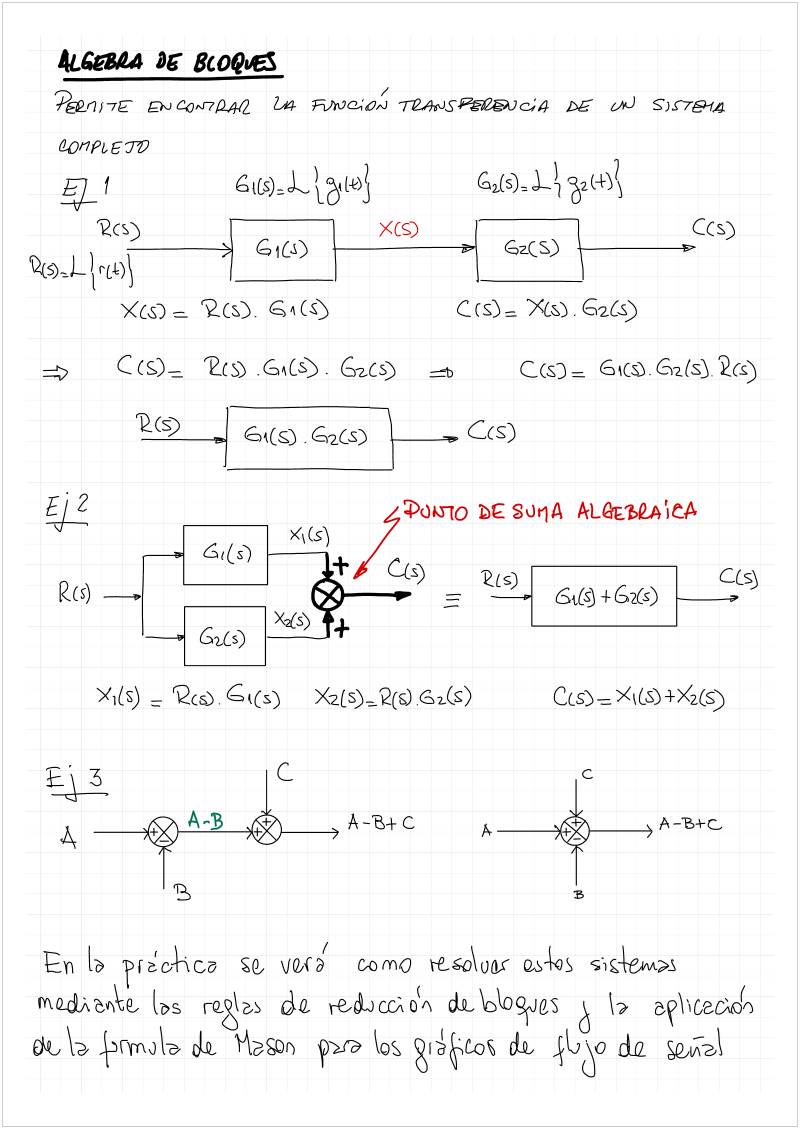 ALGEBRA DE BLOQUES
PERMITE ENCONTRAR LA FUNCIÓN TRANSFERENCIA DE UN SISTEMA
COMPLEJO
EJ 1
G1(s)=L{g1(t)}
G2(s)=L{g2(t)}
R(s)
G1(s)
X(s)
G2(s)
C(s)
R(s)=L{r(t)}
X(s) = R(s). G1(s)
C(s)= X(s). G2(s)
⇒ C(s)= R(s).G1(s). G2(s) ⇒ C(s)= G1(s).G2(s).R(s)
R(s)
G1(s). G2(s)
C(s)
Ej 2
PUNTO DE SUMA ALGEBRAICA
R(s)
G1(s)
X1(s)
+
C(s)
G2(s)
X2(s)
+
≡
R(s)
G1(s)+G2(s)
C(s)
X1(s) = R(s). G1(s) X2(s)=R(s).G2(s) C(s)=X1(s)+X2(s)
Ej 3
C
A
+
-
A-B
+
+
A-B+C
B
C
A
+
+
-
A-B+C
B
En la práctica se verá como resolver estos sistemas
mediante las reglas de reducción de bloques y la aplicación
de la formula de Mason para los gráficos de flujo de señal